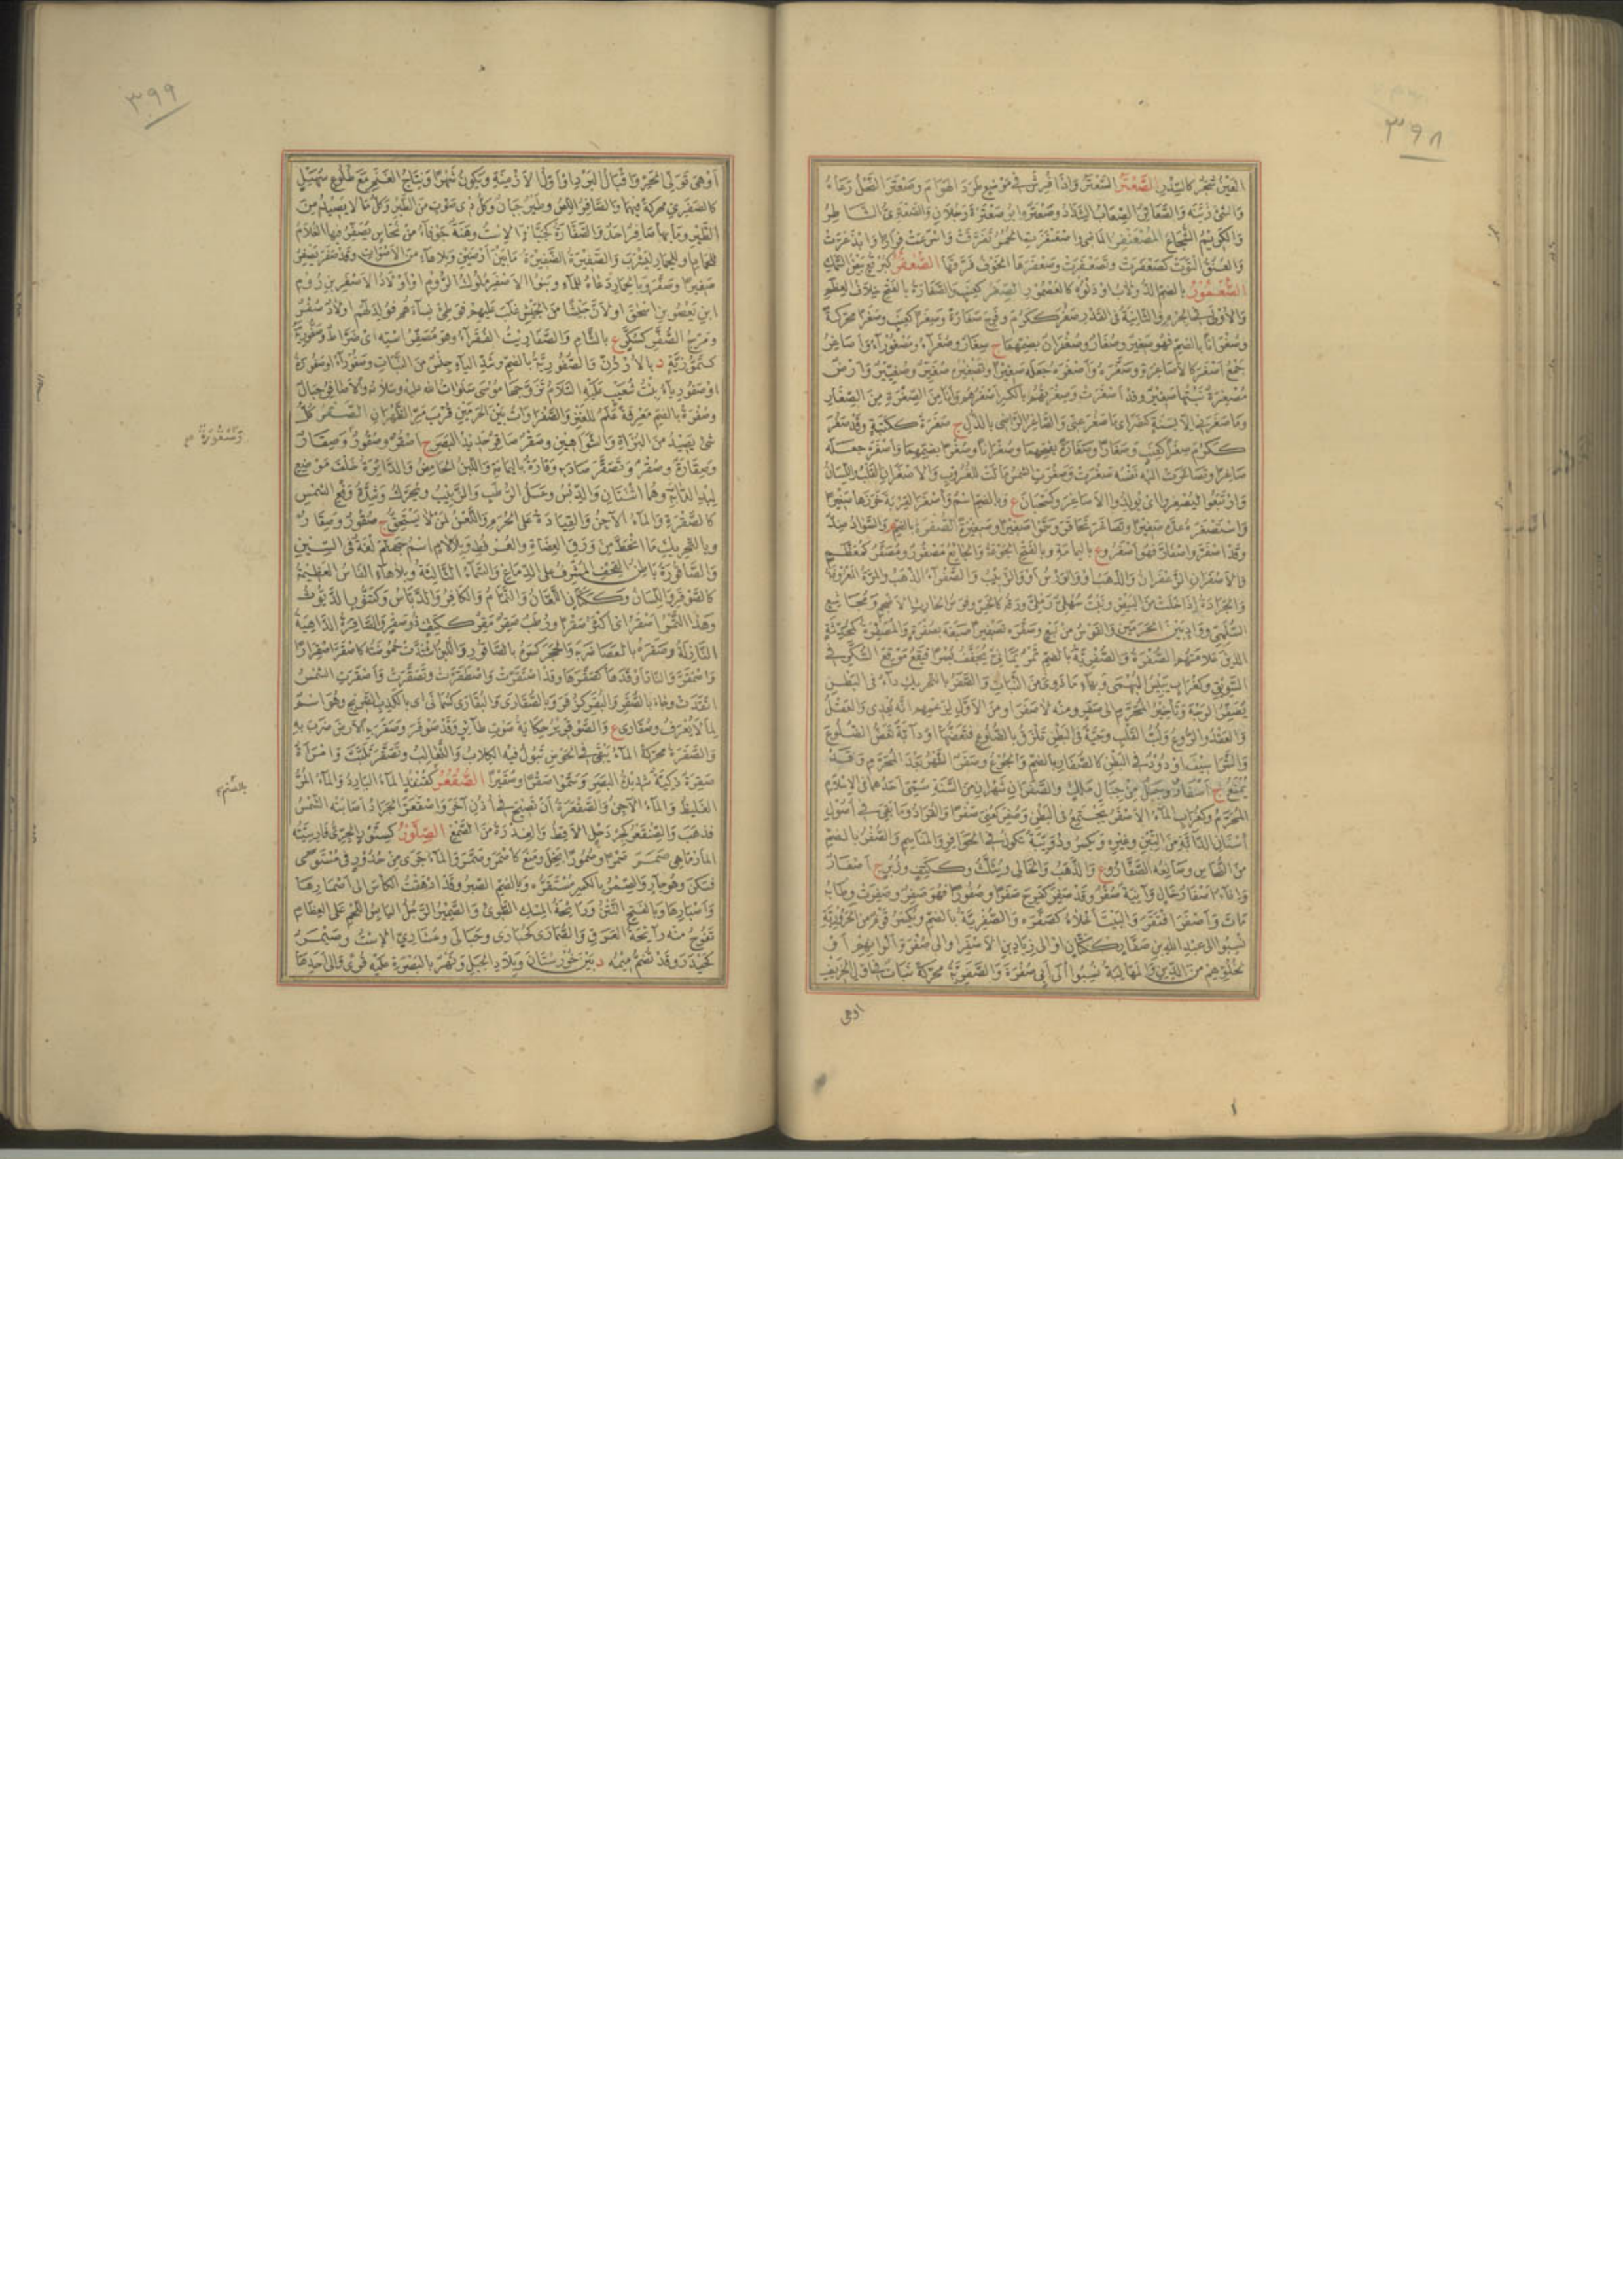 ٣٩٨
العين شجر كالسدر الصعتر السعتر واذا فرش في موضع طرد الهوام وصعتر النحل رعاه
والشئ زينه والصعاتر وابو صعترة رجلان والصعتري الشاطر
والكريم الشجاع
والعنق التوت كصعفرت وتصعفرت وصعفرها الخوف فرقها الصعقر كبرقع بيض السمك
الصعمور بالضم الدولاب او دلوه كالعصمور الصغر كعنب والصغارة بالفتح خلاف العظم
والاولى في الجرم والثانية في القدر صغر ككرم وفرح صغارة وصغرا كعنب وصغرا محركة
وصغرانا بالضم فهو صغير وصغار وصغران بضمهما ج صغار وصغراء ومصغوراء واصاغر
جمع اصغر كالاصاغرة وصغره واصغره جعله صغيرا وتصغيره صغير وصغيير وارض
مصغرة نبتها صغير وقد اصغرت وصغرتهم بالكسر اصغرهم وانا من الصغرة من الصغار
وما صغرني الا بسنة كنصر اي ما صغر عني والصاغر الراضي بالذل ج صغرة ككتبة وقد صغر
ككرم صغرا كعنب وصغارا وصغارة بفتحهما وصغرانا وصغرا بضمهما واصغره جعله
صاغرا وتصاغرت اليه نفسه صغرت وصغرت الشمس مالت للغروب والاصغران القلب واللسان
وارتبعوا ليصغروا اي يولدوا الاصاغر وكسحبان ع وبالضم اسم واصغر القربة خرزها صغيرا
واستصغره عده صغيرا وتصاغر تحاقر وسموا صغيرا وصغيرة الصفرة بالضم م والسواد ضد
وقد اصفر واصفار فهو اصفر وع باليمامة وبالفتح الجوعة والجائع مصفور ومصفر كمعظم
والاصفران الزعفران والذهب او والورس او والزبيب والصفراء الذهب والمرة المعروفة
والجرادة اذا خلت من البيض ونبت سهلي رملي ورقه كالخس وفرس الحارث الاضجم ومجاشع
السلمي وواد بين الحرمين والقوس من نبع وصفره تصفيرا صبغه بصفرة والمصفرة كمحدثة
الذين علامتهم الصفرة والصفرية بالضم تمر يماني يجفف بسرا فيقع موقع السكر في
السويق وكغراب يبيس البهمى وبهاء ما ذوى من النبات والصفر بالتحريك داء في البطن
يصفر الوجه وتأخير المحرم الى صفر ومنه لا صفر او من الاول لزعمهم انه يعدي والعقل
والعقد والروع ولب القلب وحية في البطن تلزق بالضلوع فتعضها او دابة تعض الضلوع
والشراسيف او دود في البطن كالصفار بالضم والجوع وصفر الشهر بعد المحرم وقد
يمنع ج اصفار وجبل من جبال ملل والصفران شهران من السنة سمي احدهما في الاسلام
المحرم وكغراب الماء الاصفر يجتمع في البطن وصفر كعني صفرا والقراد وما بقي في اصول
اسنان الدابة من التبن وغيره ويكسر ودويبة تكون في الحوافر والمناسم والصفر بالضم
من النحاس وصانعه الصفار وع والذهب والخالي ويثلث وككتف وزبر ج اصفار
واناء اصفار خال وآنية صفر وقد صفر كفرح صفرا وصفورا فهو صفر وصفرت وطابه
مات واصفر افتقر والبيت اخلاه كصفره والصفرية بالضم ويكسر قوم من الحرورية
نسبوا الى عبد الله بن صفار ككتان او الى زياد بن الاصفر او الى صفرة الوانهم او
لخلوهم من الدين والمهالبة نسبوا الى ابي صفرة والصفرية محركة نبات في اول الخريف
اوهي
٣٩٩
او هي تولي الحر واقبال البرد او اول الازمنة وتكون شهرا ونتاج الغنم مع طلوع سهيل
كالصفري محركة فيهما والصافر اللص وطير جبان وكل ذي صوت من الطير وكل ما لا يصيد من
الطير وما بها صافر احد والصفارة كجبانة الاست وهنة جوفاء من نحاس يصفر فيها الغلام
للحمام او للحمار ليشرب والصفيرة الضفيرة ما بين ارضين وبلا هاء من الاصوات وقد صفر يصفر
صفيرا وصفر وبالحمار دعاه للماء وبنو الاصفر ملوك الروم اولاد الاصفر بن روم
ابن يعصو بن اسحق او لان جيشا من الحبش غلب عليهم فوطئ نساءهم فولد لهم اولاد صفر
ومرج الصفر كسكر ع بالشام والصفاريت الفقراء وهو مصفر استه اي ضراط وصفورية
كعمورية د بالاردن والصفورية بالضم وشد الياء جنس من النبات وصفوراء او صفورة
او صفورياء بنت شعيب عليه السلام تزوجها موسى صلوات الله عليه وسلامه والاصافر جبال
وصفرة بالضم معرفة علم للعنز والصفراوات بين الحرمين قرب مر الظهران الصقر كل
شئ يصيد من البزاة والشواهين وصقر صاقر حديد البصر ج اصقر وصقور وصقار
وصقارة وصقر وتصقر صاد به وقارة باليمامة واللبن الحامض والدائرة خلف موضع
لبد الدابة وهما اثنتان والدبس وعسل الرطب والزبيب ويحرك وشدة وقع الشمس
كالصقرة والماء الآجن والقيادة على الحرم واللعن لمن لا يستحق ج صقور وصقار
وبالتحريك ما انحط من ورق العضاه والعرفط وبلالام اسم جهنم لغة في السين
والصاقورة باطن القحف المشرف على الدماغ والسماء الثالثة وبلا هاء الفاس العظيمة
كالصوقر واللسان وككتان اللعان والنمام والكافر والدباس وكتنور الديوث
وهذا التمر اصقر اي اكثر صقرا ورطب صقر مقر ككتف ذو صقر والصاقرة الداهية
النازلة وصقره بالعصا ضربه والحجر كسره بالصاقور واللبن اشتدت حموضته كاصقر اصقرارا
واصمقر والنار اوقدها كصقرها وقد اصتقرت واصطقرت وتصقرت واصقرت الشمس
اتقدت وجاء بالصقر والبقر كزفر وبالصقارى والبقارى كسمانى اي بالكذب الصريح وهو اسم
لما لا يعرف وصقارى ع والصوقرير حكاية صوت طائر وقد صوقر وصقر به الارض ضرب به
والصقرة محركة الماء يبقى في الحوض تبول فيه الكلاب والثعالب وتصقر تلبث وامرأة
صقرة ذكية شديدة البصر وسموا صقرا وصقيرا الصقعر كقنفذ الماء البارد والماء المر
الغليظ والماء الآجن والصقعرة ان تصيح في اذن آخر واصقعر الجراد اصابته الشمس
فذهب والصنقعر كجردحل الاقط والعذرة من الصمغ الصلور كسنور الجري فارسيته
المارماهي صمر صمرا وصمورا بخل ومنع كاصمر وصمر والماء جرى من حدور في مستوى
فسكن وهو جار والصمر بالكسر مستقره وبالضم الصبر وقد ادهقت الكأس الى اصمارها
واصبارها وبالفتح النتن ورائحة المسك الطري والصمير الرجل اليابس اللحم على العظام
تفوح منه رائحة العرق والصمارى كحبارى وحبالى وعشاري الاست وصيمر
كحيدر وقد تضم ميمه د بين خوزستان وبلاد الجبل ونهر بالبصرة عليه قرى والى احدها
وصفورة م
بالضم